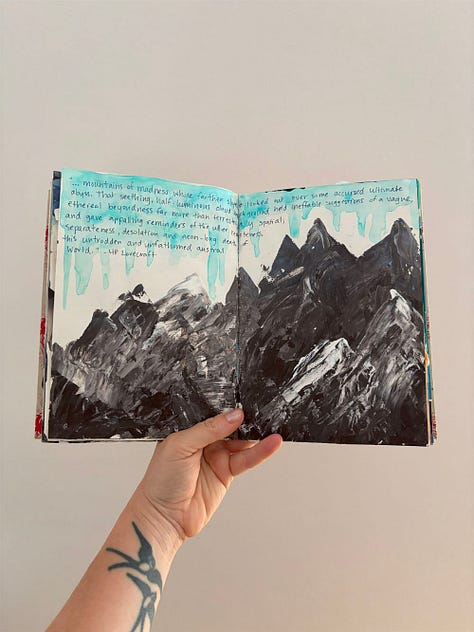 "... mountains of madness whose farther slopes looked out over some accursed ultimate
abyss. That seething, half-luminous cloud background held ineffable suggestions of a vague,
ethereal beyondness far more than terrestrially spatial;
and gave appalling reminders of the utter remoteness,
separateness, desolation and aeon-long death of
this untrodden and unfathomed austral
world..." -HP Lovecraft